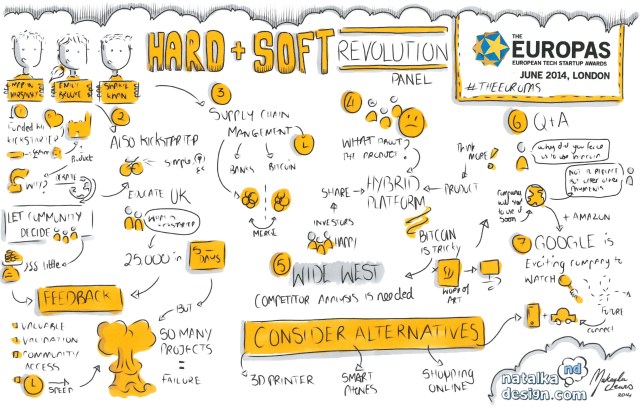 HARD + SOFT
REVOLUTION
PANEL
THE
EUROPAS
EUROPEAN TECH STARTUP AWARDS
JUNE 2014, LONDON
#THEEUROPAS
1
KICKSTARTER
Product
WHY?
LET COMMUNITY
DECIDE
little
FEEDBACK
VALUABLE
VALIDATION
COMMUNITY
ACCESS
SPEED
2
ALSO KICKSTARTER
EDUCATE UK
25.000 in
5 DAYS
BUT
SO MANY
PROJECTS
=
FAILURE
3
SUPPLY CHAIN
MANGEMENT
BANKS
BITCOIN
MERGE
4
WHAT ABOUT
THE PRODUCT?
THINK
MORE!
SHARE
HYBRID
PLATFORM
PRODUCT
INVESTORS
HAPPY
BITCOIN
IS TRICKY
WORK OF
ART
5
WIDE WEST
COMPETITOR ANALYSIS IS NEEDED
CONSIDER ALTERNATIVES
3D PRINTER
SMART
PHONES
SHOPPING
ONLINE
6
Q+A
+ AMAZON
7
GOOGLE is
Exciting company to
WATCH
FUTURE
connect
natalka
design.com
nd
2014